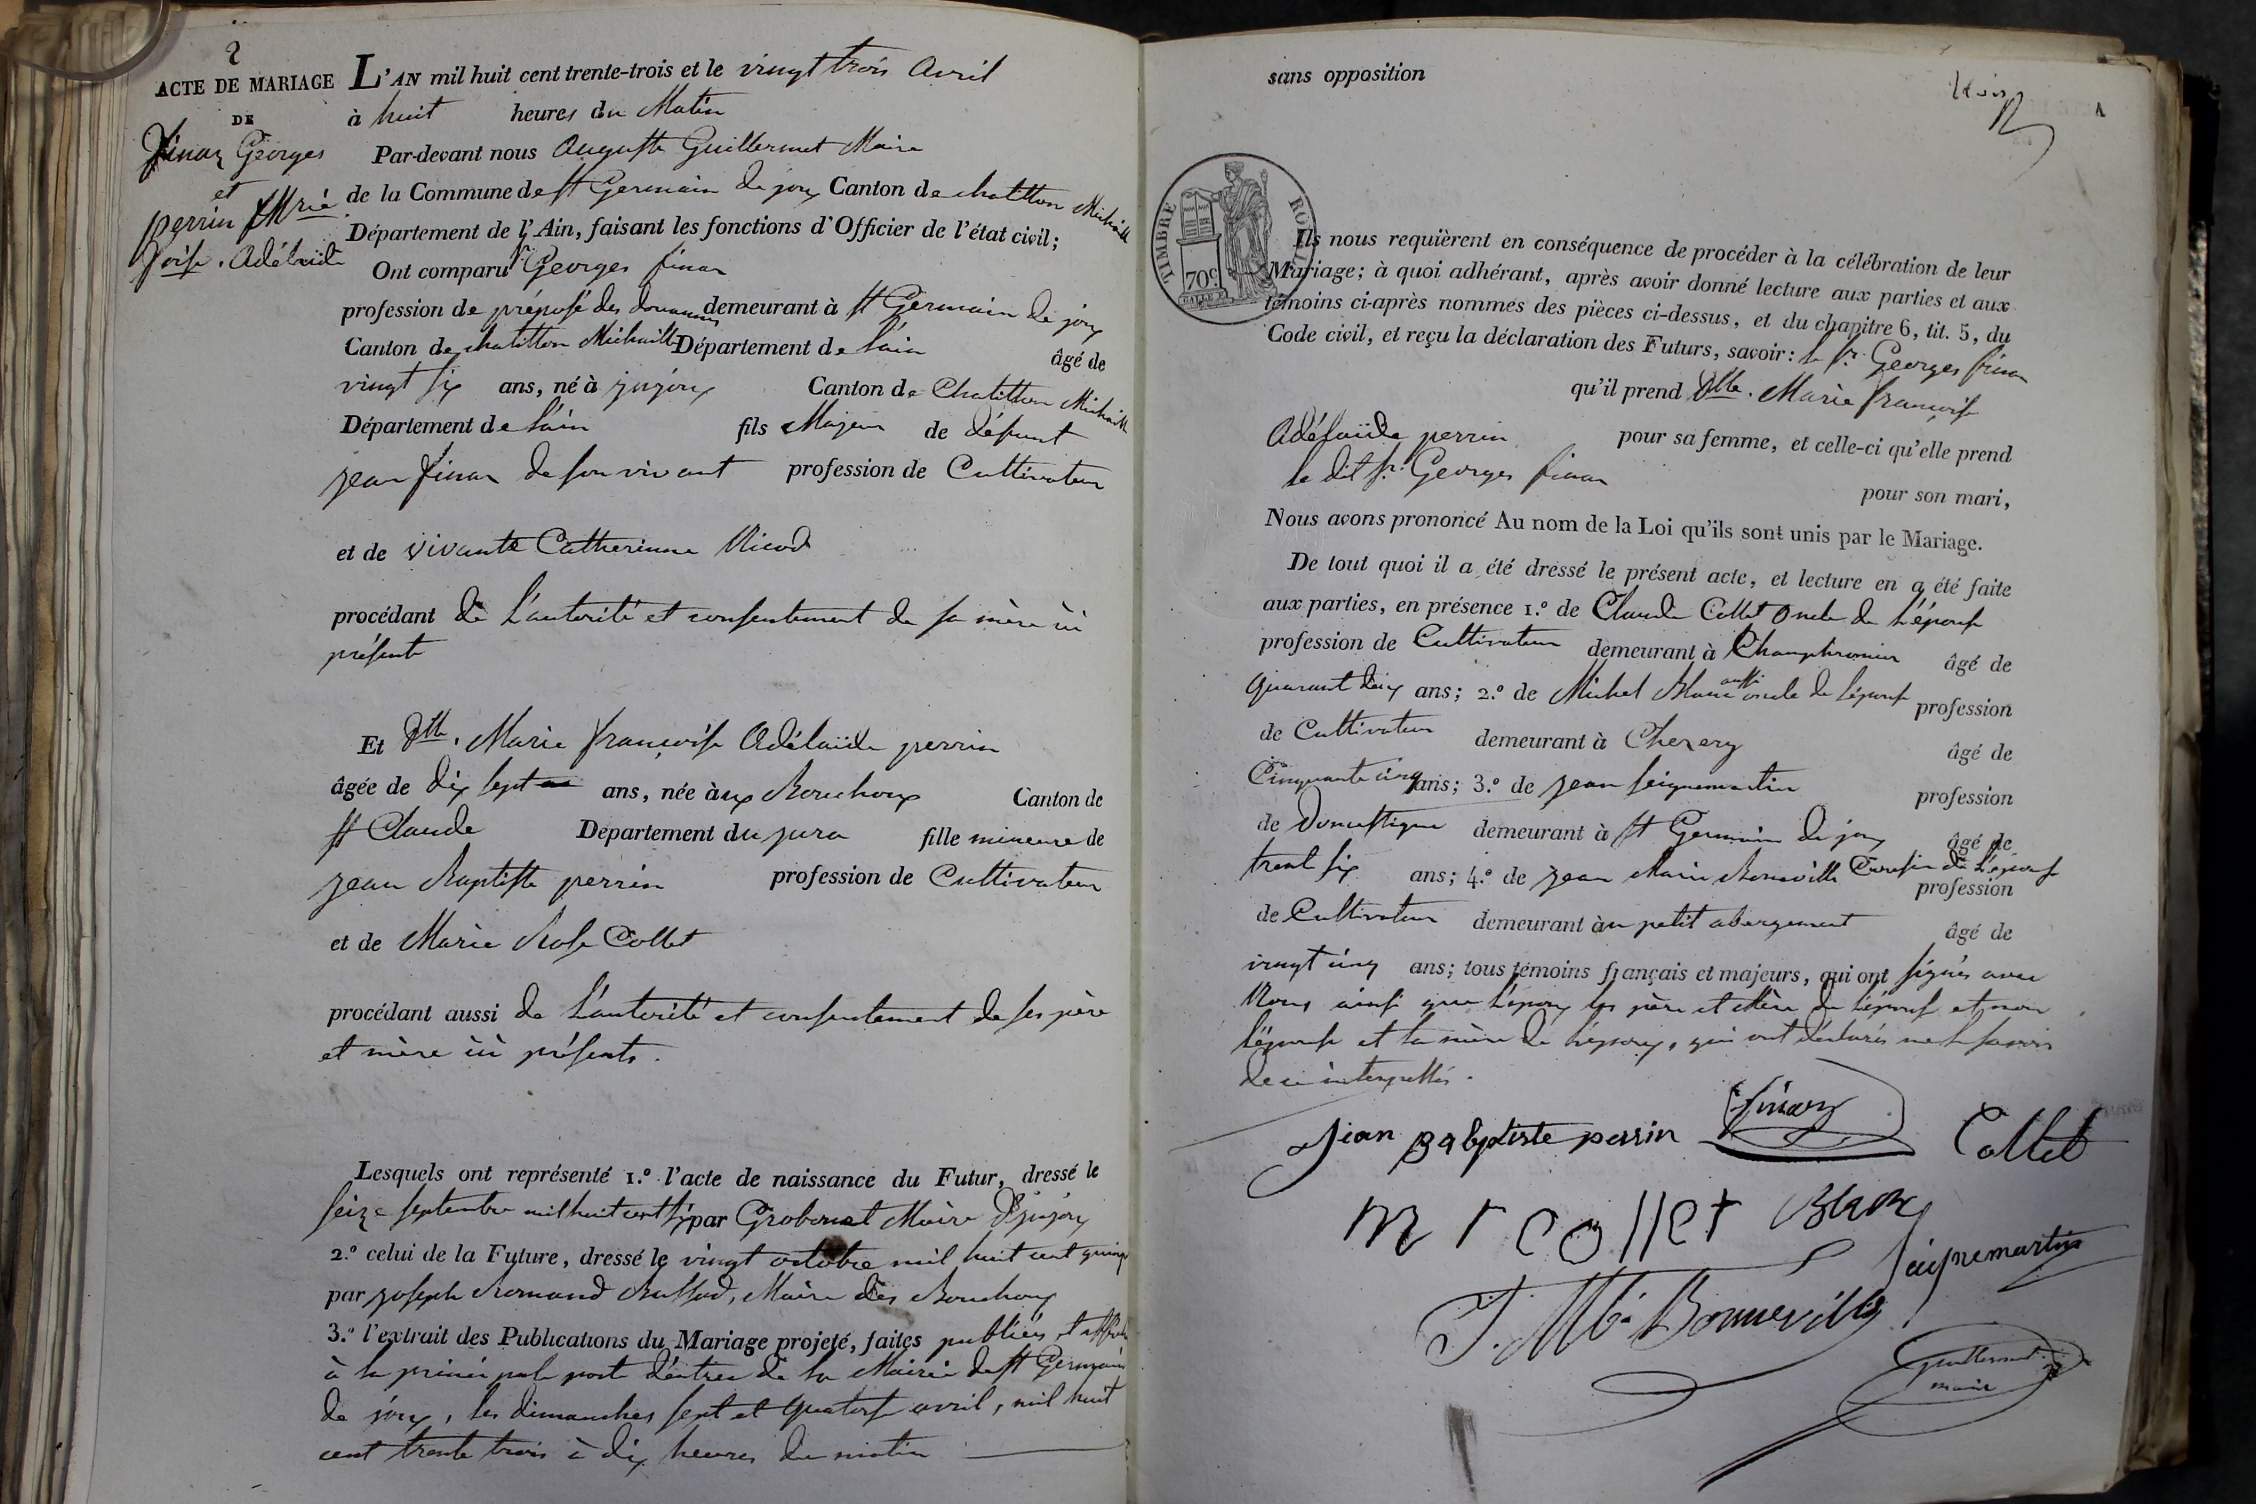 2
ACTE DE MARIAGE
DE
Finaz Georges
et
perrin Mrie
foise. Adélaïde
L'AN mil huit cent trente-trois et le vingt trois avril
à huit heures du Matin
Par-devant nous Auguste Guillermet Maire
de la Commune de st Germain de joux Canton de chatillon Michaille
Département de l'Ain, faisant les fonctions d'Officier de l'état civil;
Ont comparu sr. Georges finaz
profession de préposé des douannes demeurant à st Germain de joux
Canton de chatillon Michaille Département de l'ain âgé de
vingt six ans, né à jujoux Canton de Chatillon Michaille
Département de l'ain fils Majeur de défunt
jean finaz de son vivant profession de Cultivateur
et de vivante Catherinne Nicod
procédant de L'autorité et consentement de sa mère ici
présente
Et Dlle. Marie françoise Adélaïde perrin
âgée de dix sept ans, née aux Bouchoux Canton de
st Claude Département du jura fille mineure de
jean Baptiste perrin profession de Cultivateur
et de Marie Rose Collet
procédant aussi de L'autorité et consentement de ses père
et mère ici présents.
Lesquels ont représenté 1.º l'acte de naissance du Futur, dressé le
seize septembre mil huit cent six par Grobonet Maire d'jujoux
2.º celui de la Future, dressé le vingt octobre mil huit cent quinze
par joseph Romand Maire des Bouchoux
3.º l'extrait des Publications du Mariage projeté, faites publiées et affichées
à la principale porte d'entrée de la Mairie de st Germain
de joux, les dimanches sept et quatorse avril, mil huit
cent trente trois à dix heures du matin
sans opposition
trois
TIMBRE ROYAL
70 c.
Ils nous requièrent en conséquence de procéder à la célébration de leur
Mariage; à quoi adhérant, après avoir donné lecture aux parties et aux
témoins ci-après nommés des pièces ci-dessus, et du chapitre 6, tit. 5, du
Code civil, et reçu la déclaration des Futurs, savoir: le sr. Georges finaz
qu'il prend Dlle. Marie françoise
Adélaïde perrin pour sa femme, et celle-ci qu'elle prend
le dit sr. Georges finaz pour son mari,
Nous avons prononcé Au nom de la Loi qu'ils sont unis par le Mariage.
De tout quoi il a été dressé le présent acte, et lecture en a été faite
aux parties, en présence 1.º de Claude Collet oncle de L'épouse
profession de Cultivateur demeurant à Champfromier âgé de
quarant deux ans; 2.º de Michel Blanc aussi oncle de l'épouse profession
de Cultivateur demeurant à Chezery âgé de
Cinquante cinq ans; 3.º de jean seignemartin profession
de Domestique demeurant à st Germain de joux âgé de
trente six ans; 4.º de jean Marie Bonneville Cousin de L'épouse profession
de Cultivateur demeurant au petit abergement âgé de
vingt cinq ans; tous témoins français et majeurs, qui ont signés avec
Nous ainsi que L'époux les père et Mère de L'épouse et non
l'épouse et la mère de l'époux, qui ont déclarés ne le savoir
de ce interpellés.
Jean Babptiste perrin finaz Collet
m r collet Blanc
seignemartin
J. Mie Bonneville
Guillermet
maire